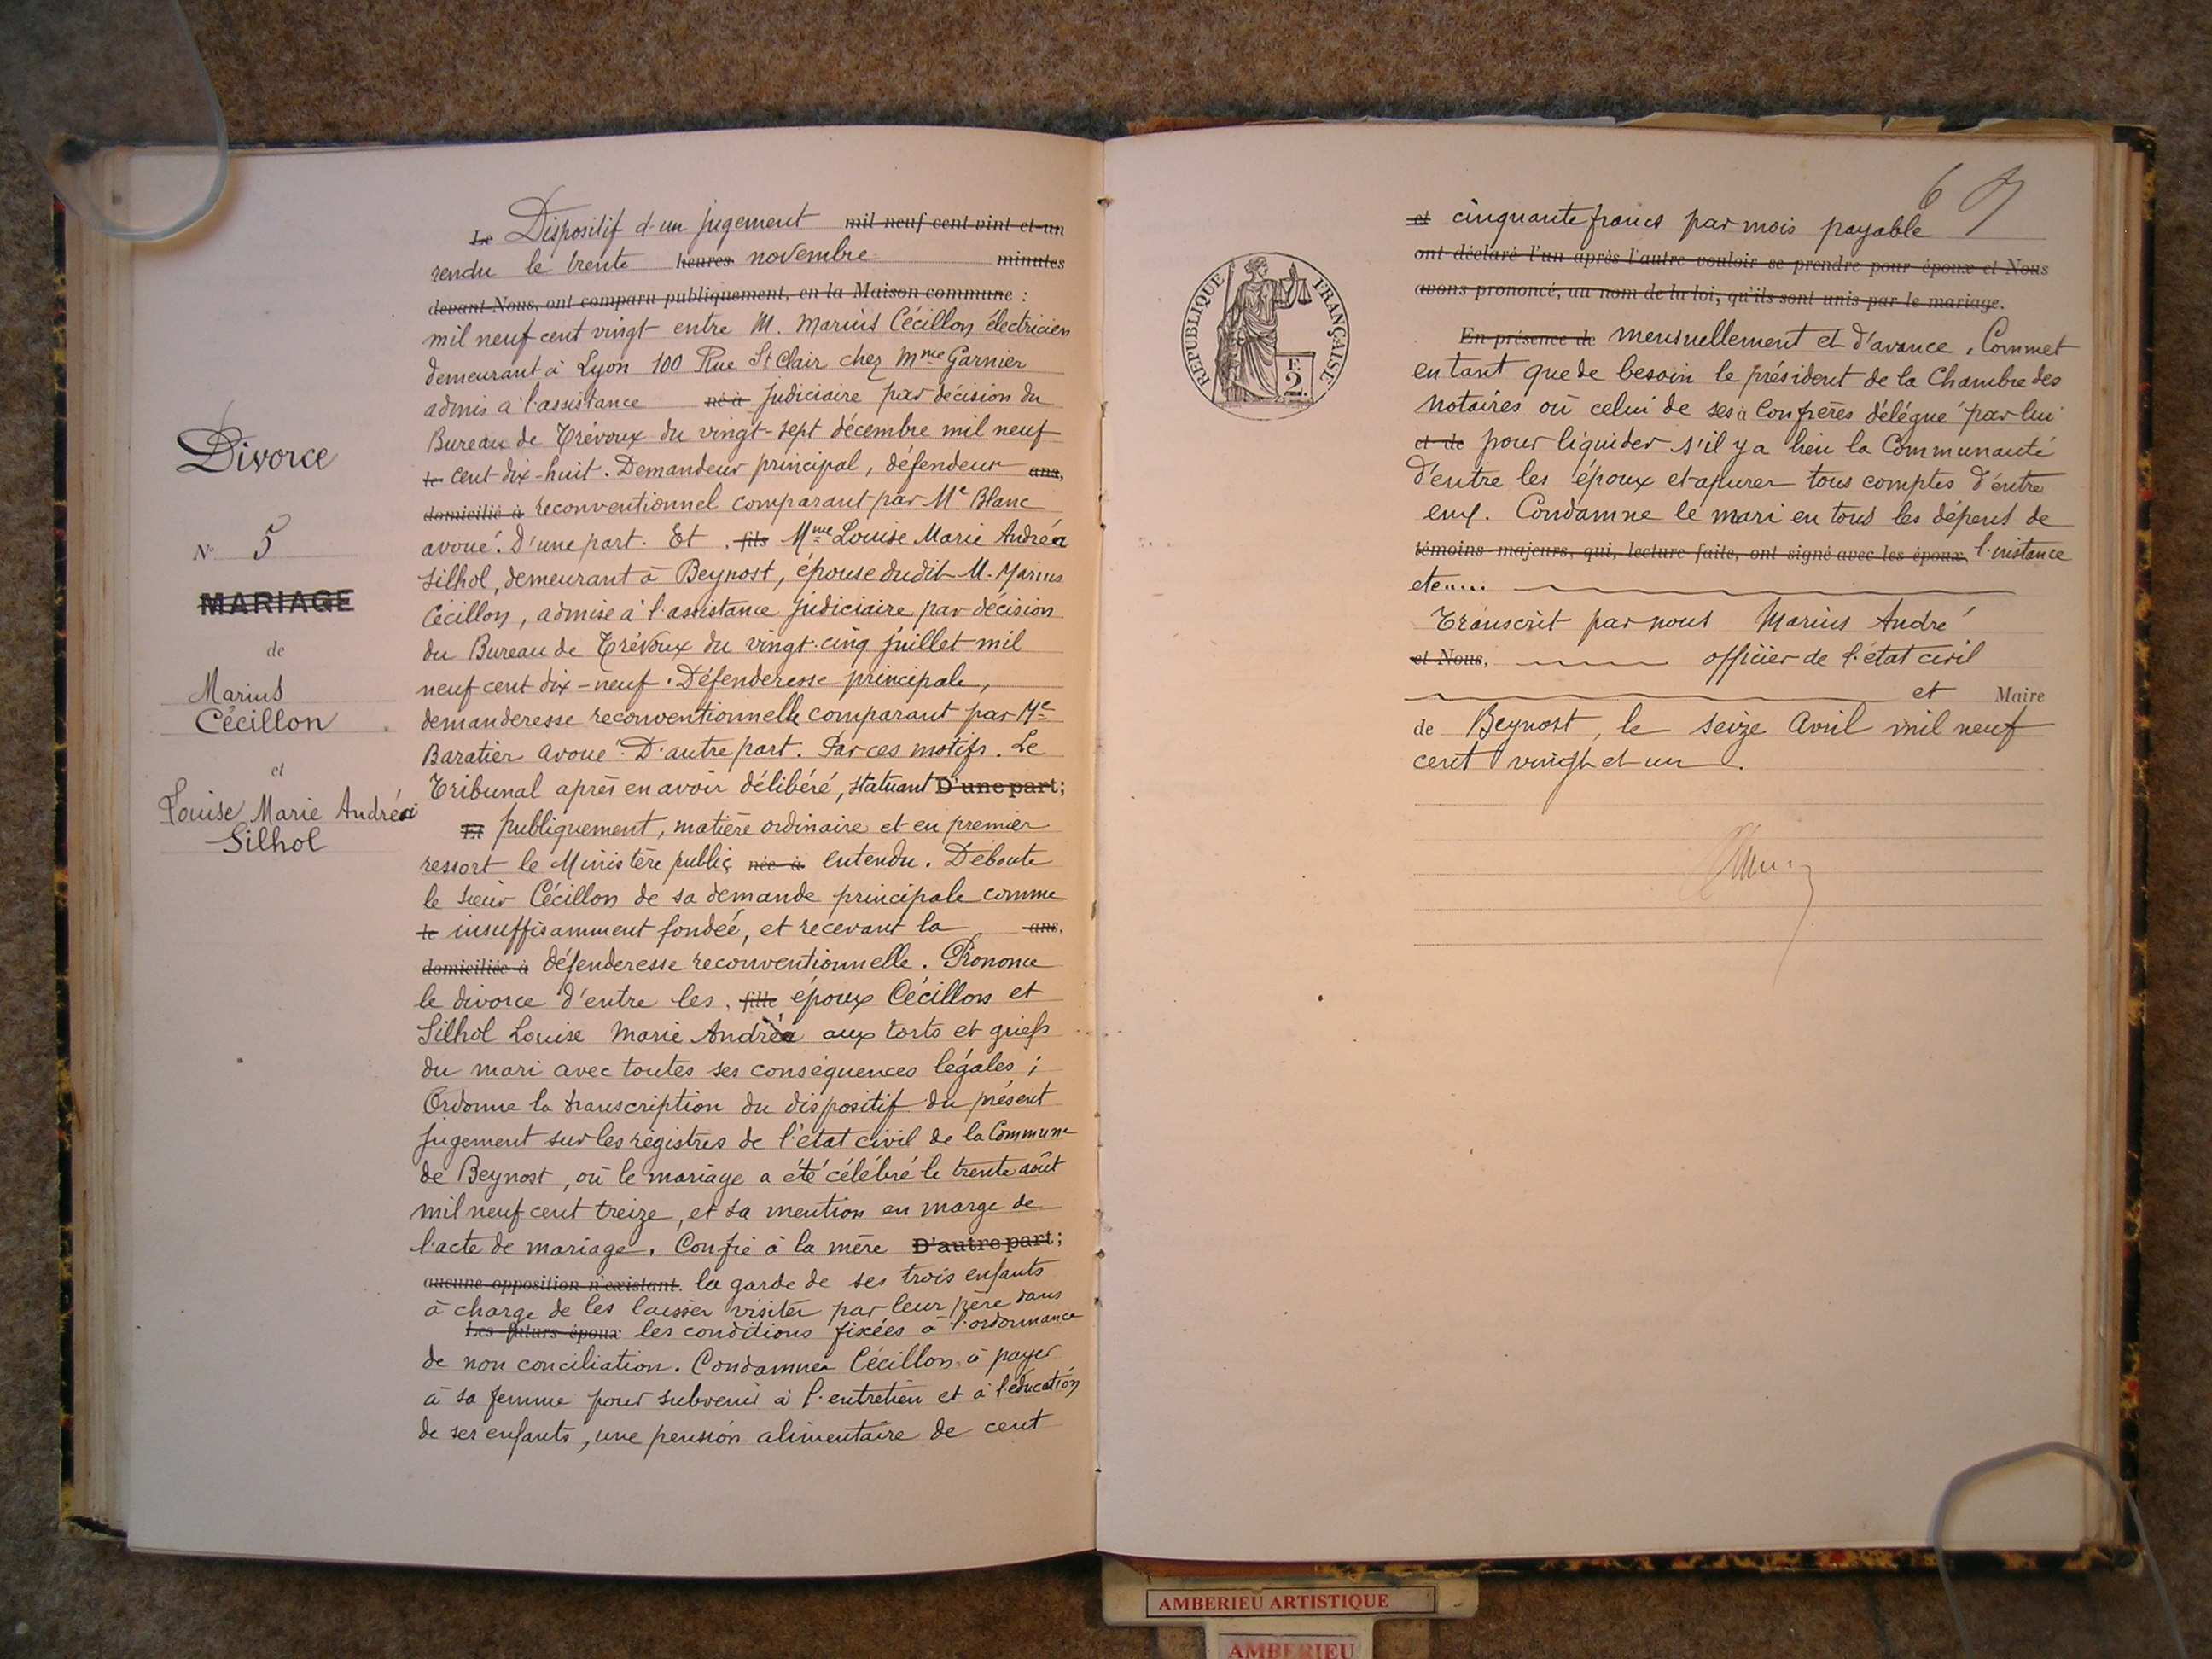 Divorce
N° 5
MARIAGE
de
Marius
Cécillon
et
Louise Marie Andréa
Silhol
Le Dispositif d'un jugement mil neuf cent vint et un
rendu le trente heures novembre minutes
devant Nous, ont comparu publiquement, en la Maison commune :
mil neuf cent vingt entre M. Marius Cécillon électricien
demeurant à Lyon 100 Rue St Clair chez Mme Garnier
admis à l'assistance né à judiciaire par décision du
Bureau de Trévoux du vingt-sept décembre mil neuf
le cent dix-huit. Demandeur principal, défendeur ans,
domicilié à reconventionnel comparant par Me Blanc
avoué. D'une part. Et , fils Mme Louise Marie Andréa
Silhol, demeurant à Beynost, épouse dudit M. Marius
Cécillon, admise à l'assistance judiciaire par décision
du Bureau de Trévoux du vingt-cinq juillet mil
neuf cent dix-neuf. Défenderesse principale,
demanderesse reconventionnelle comparant par Me
Baratier avoué. D'autre part. Par ces motifs. Le
Tribunal après en avoir délibéré, statuant D'une part;
Et publiquement, matière ordinaire et en premier
ressort le Ministère public née à entendu. Déboute
le sieur Cécillon de sa demande principale comme
le insuffisamment fondée, et recevant la ans,
domiciliée à défenderesse reconventionnelle. Prononce
le divorce d'entre les , fille époux Cécillon et
Silhol Louise Marie Andréa aux torts et griefs
du mari avec toutes ses conséquences légales ;
Ordonne la transcription du dispositif du présent
jugement sur les régistres de l'état civil de la Commune
de Beynost, où le mariage a été célébré le trente août
mil neuf cent treize, et sa mention en marge de
l'acte de mariage. Confie à la mère D'autre part;
aucune opposition n'existant. la garde de ses trois enfants
à charge de les laisser visiter par leur père dans
Les futurs époux les conditions fixées à l'ordonnance
de non conciliation. Condamne Cécillon à payer
à sa femme pour subvenir à l'entretien et à l'éducation
de ses enfants, une pension alimentaire de cent
6
et cinquante francs par mois payable
ont déclaré l'un après l'autre vouloir se prendre pour époux et Nous
avons prononcé, au nom de la loi, qu'ils sont unis par le mariage.
En présence de mensuellement et d'avance. Commet
en tant que de besoin le président de la Chambre des
notaires ou celui de ses Confrères délégué par lui
et de pour liquider s'il y a lieu la Communauté
d'entre les époux et apurer tous comptes d'entre
eux. Condamne le mari en tous les dépens de
témoins majeurs, qui, lecture faite, ont signé avec les époux, l'instance
etc....
Transcrit par nous Marius André
et Nous, officier de l'état civil
et Maire
de Beynost, le seize Avril mil neuf
cent vingt et un.
RÉPUBLIQUE FRANÇAISE
F.
2.
AMBERIEU ARTISTIQUE
AMBERIEU